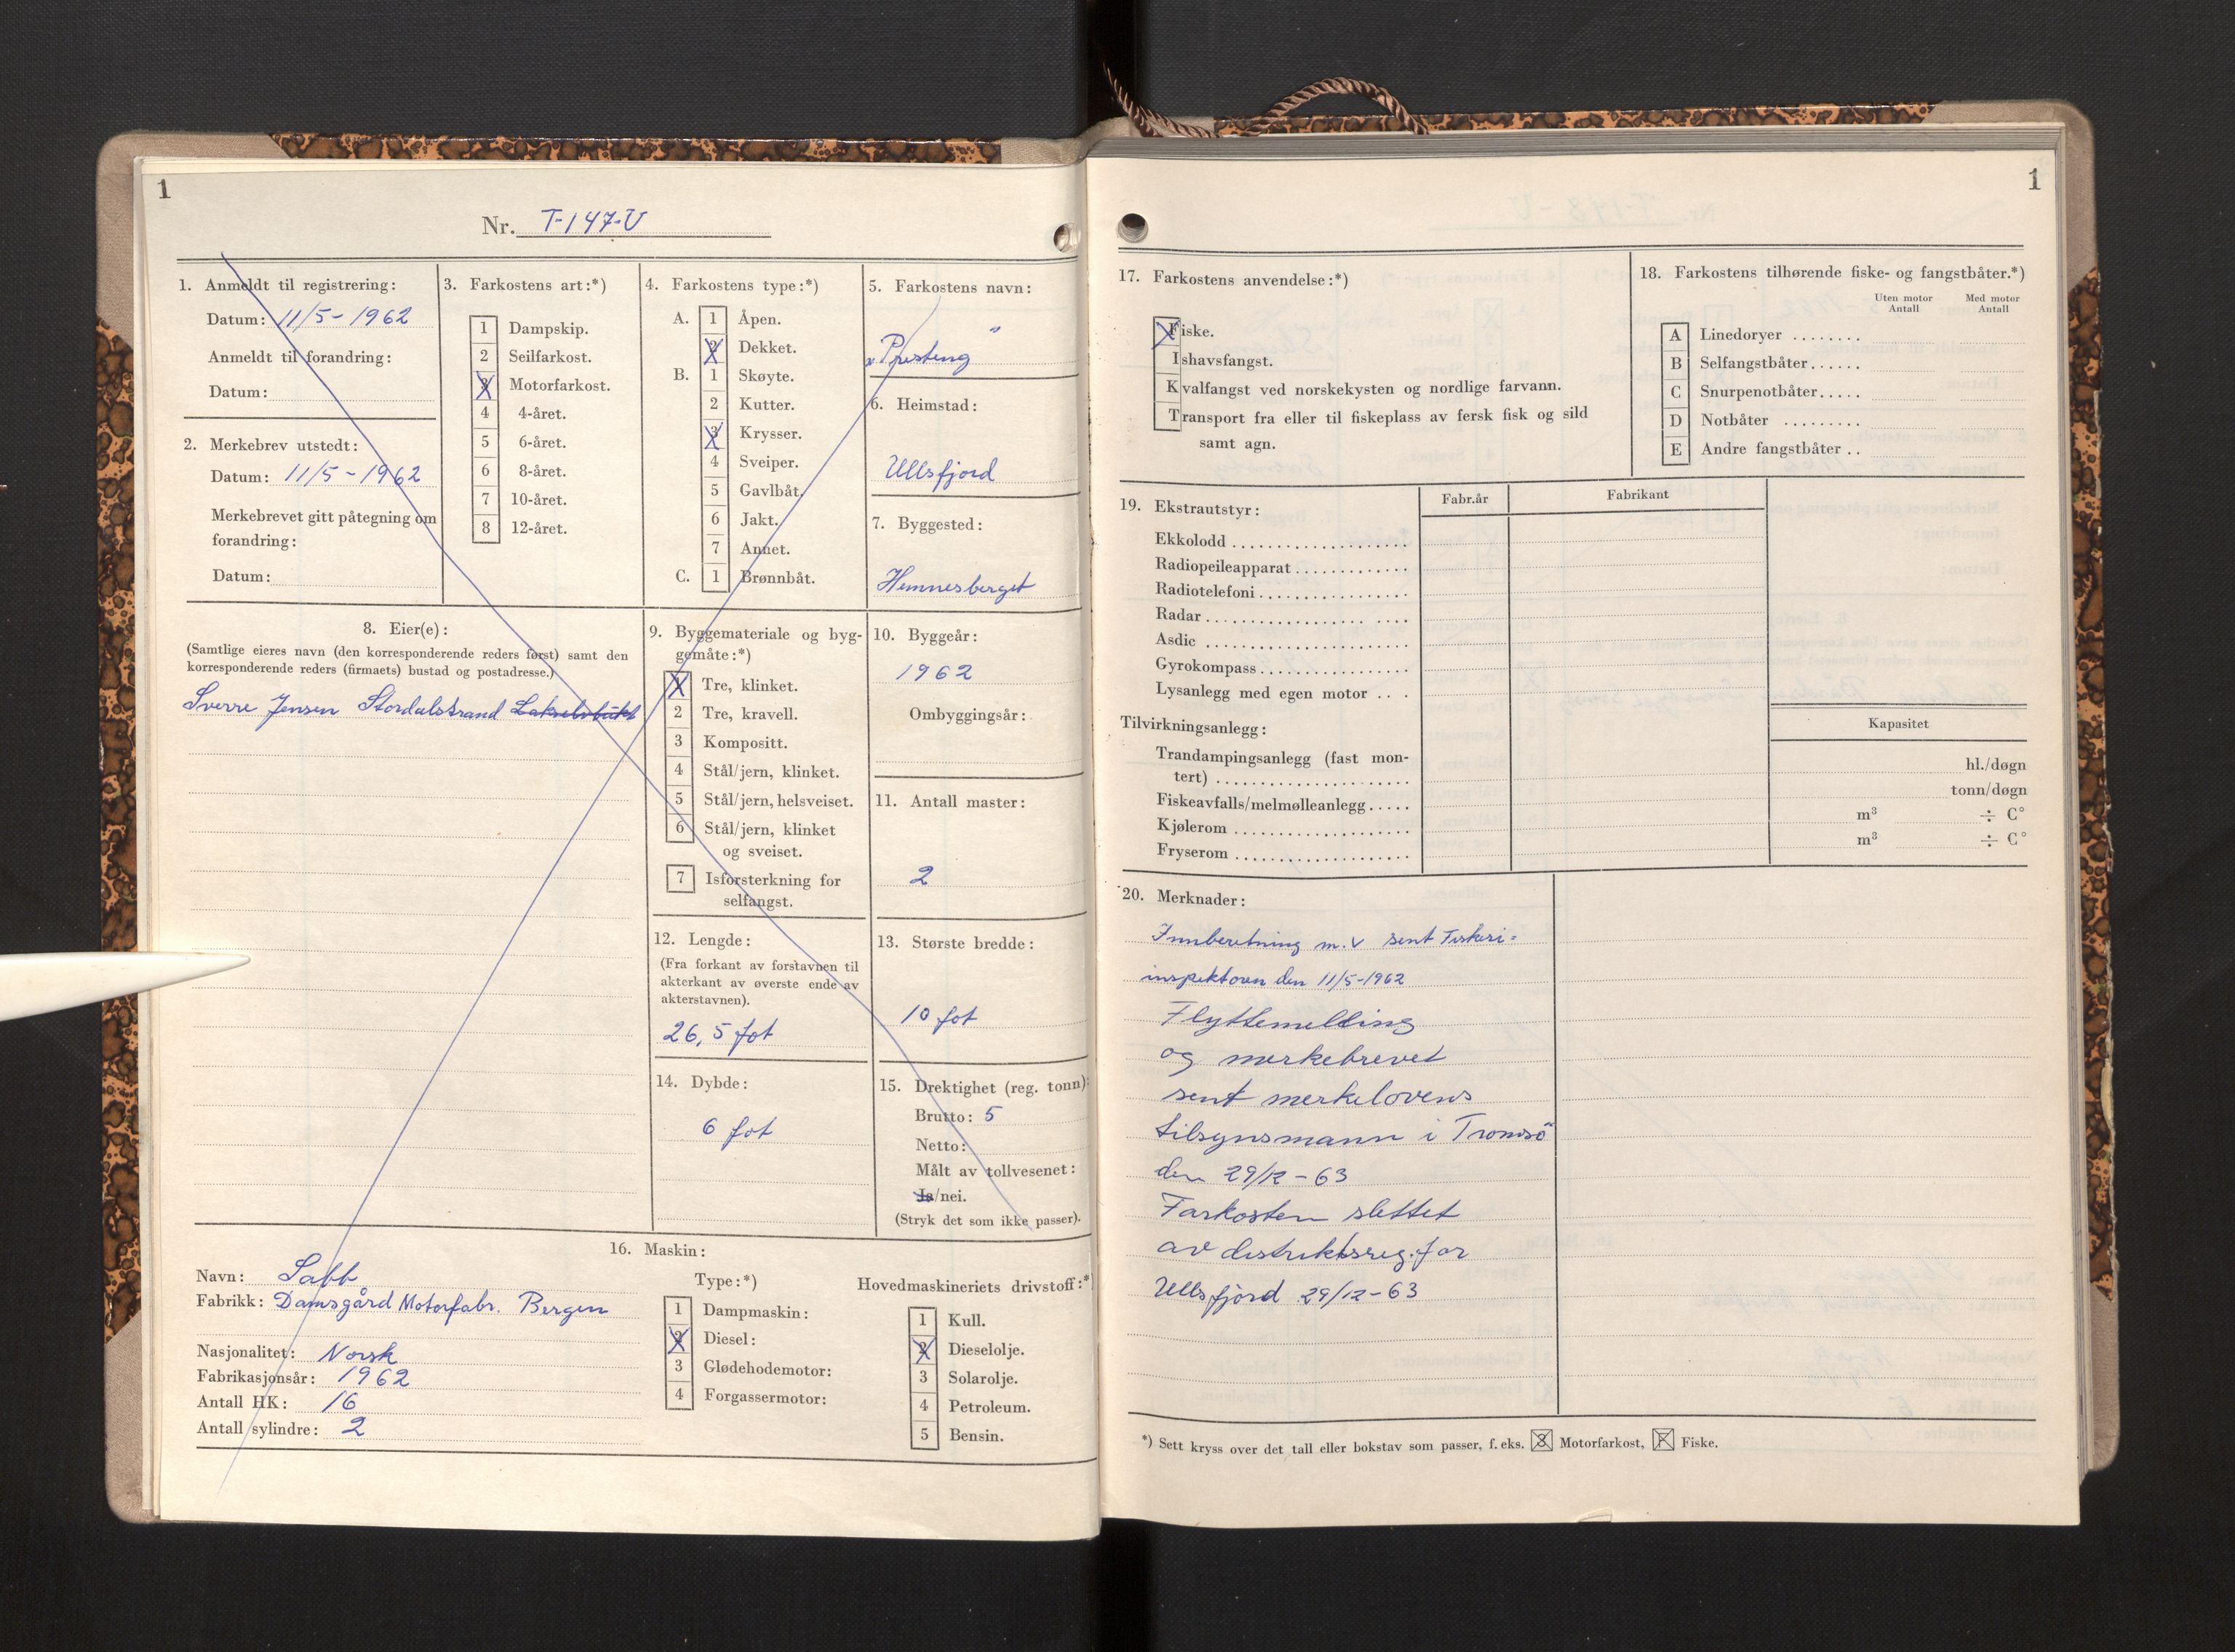 1
Nr. T-147-U
1. Anmeldt til registrering:
Datum: 11/5-1962
Anmeldt til forandring:
Datum:
2. Merkebrev utstedt:
Datum: 11/5-1962
Merkebrevet gitt påtegning om
forandring:
Datum:
3. Farkostens art:*)
1 Dampskip.
2 Seilfarkost.
3 Motorfarkost.
4 4-året.
5 6-året.
6 8-året.
7 10-året.
8 12-året.
4. Farkostens type:*)
A. 1 Åpen.
2 Dekket.
B. 1 Skøyte.
2 Kutter.
3 Krysser.
4 Sveiper.
5 Gavlbåt.
6 Jakt.
7 Annet.
C. 1 Brønnbåt.
5. Farkostens navn:
6. Heimstad:
Ullsfjord
7. Byggested:
Hemnesberget
8. Eier(e):
(Samtlige eieres navn (den korresponderende reders først) samt den
korresponderende reders (firmaets) bustad og postadresse.)
Sverre Jensen Stordalstrand Lakselvbukt
9. Byggemateriale og byg-
gemåte:*)
1 Tre, klinket.
2 Tre, kravell.
3 Kompositt.
4 Stål/jern, klinket.
5 Stål/jern, helsveiset.
6 Stål/jern, klinket
og sveiset.
7 Isforsterkning for
selfangst.
10. Byggeår:
1962
Ombyggingsår:
11. Antall master:
2
12. Lengde:
(Fra forkant av forstavnen til
akterkant av øverste ende av
akterstavnen).
26,5 fot
13. Største bredde:
10 fot
14. Dybde:
6 fot
15. Drektighet (reg. tonn):
Brutto: 5
Netto:
Målt av tollvesenet:
Ja/nei.
(Stryk det som ikke passer).
16. Maskin:
Navn: Sabb
Fabrikk: Damsgård Motorfabr. Bergen
Nasjonalitet: Norsk
Fabrikasjonsår: 1962
Antall HK: 16
Antall sylindre: 2
Type:*)
1 Dampmaskin:
2 Diesel:
3 Glødehodemotor:
4 Forgassermotor:
Hovedmaskineriets drivstoff:*)
1 Kull.
2 Dieselolje.
3 Solarolje.
4 Petroleum.
5 Bensin.
1
17. Farkostens anvendelse:*)
Fiske.
Ishavsfangst.
Kvalfangst ved norskekysten og nordlige farvann.
Transport fra eller til fiskeplass av fersk fisk og sild
samt agn.
18. Farkostens tilhørende fiske- og fangstbåter.*)
Uten motor Antall
Med motor Antall
A Linedoryer ........
B Selfangstbåter......
C Snurpenotbåter.....
D Notbåter .........
E Andre fangstbåter ..
19. Ekstrautstyr:
Fabr.år
Fabrikant
Ekkolodd
Radiopeileapparat
Radiotelefoni
Radar
Asdic
Gyrokompass
Lysanlegg med egen motor
Tilvirkningsanlegg:
Trandampingsanlegg (fast mon-
tert)
Fiskeavfalls/melmølleanlegg
Kjølerom
Fryserom
Kapasitet
hl./døgn
tonn/døgn
m³ ÷ C°
m³ ÷ C°
20. Merknader:
Innberetning m.v sent Fiskeri-
inspektoren den 11/5-1962
Flyttemelding
og merkebrevet
sent merkelovens
tilsynsmann i Tromsö
den 29/12-63
Farkosten slettet
av distriktsreg. for
Ullsfjord 29/12-63
*) Sett kryss over det tall eller bokstav som passer, f. eks. 3 Motorfarkost, F Fiske.